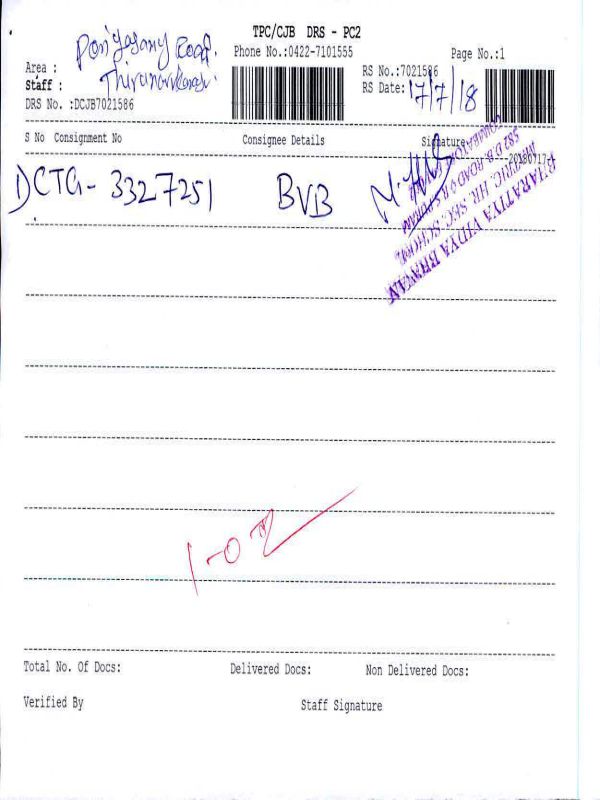 TPC/CJB DRS - PC2
Phone No.:0422-7101555
Page No.:1
Area : Road.
Staff :
DRS No. :DCJB7021586
RS No.:7021586
RS Date: 17/7/18
S No Consignment No Consignee Details Signature
1) CTG - 3327251 BVB
20180717
BHARATIYA VIDYA BHAVAN
HR. SEC. SCHOOL
582, D.B. ROAD, R.S. PURAM
1-0
Total No. Of Docs: Delivered Docs: Non Delivered Docs:
Verified By Staff Signature